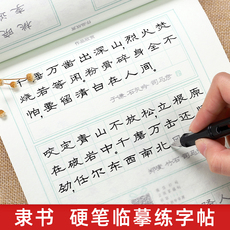 千锤万凿出深山，烈火焚
烧若等闲。粉骨碎身全不
怕，要留清白在人间。
咬定青山不放松，立根原
在破岩中。千磨万击还坚
劲，任尔东西南北
隶书 硬笔临摹练字帖